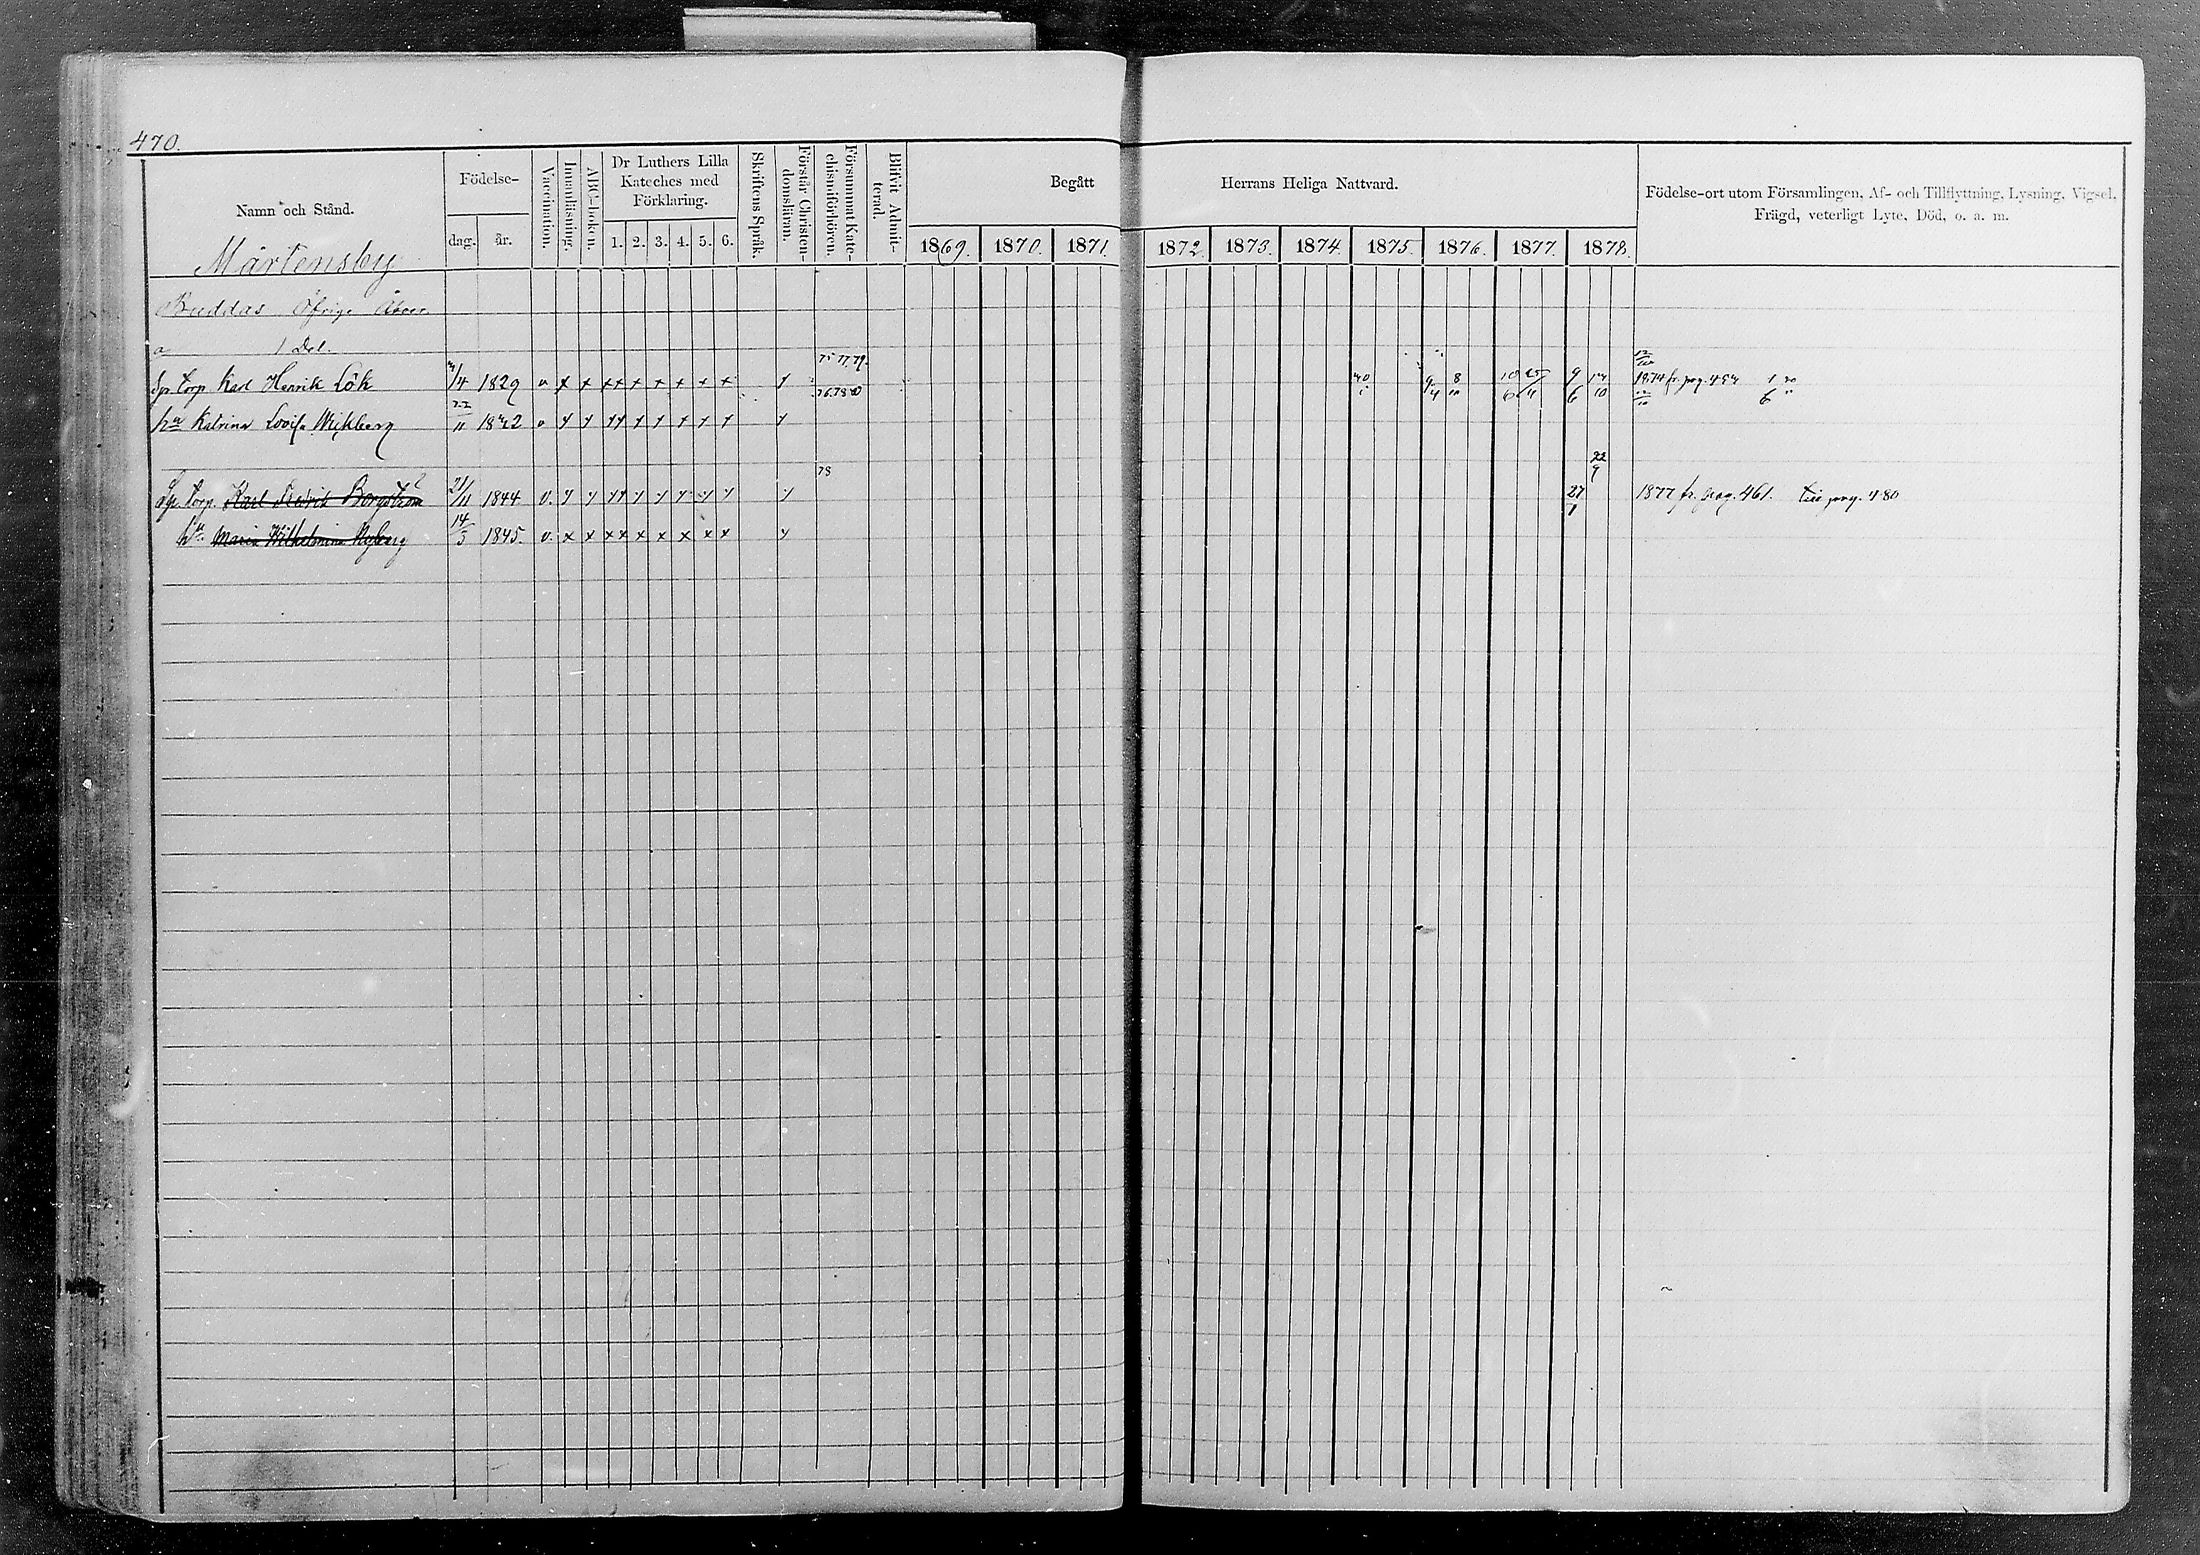 470.
Namn och Stånd.
Mårtensby
Födelse-
dag. år.
Vaccination.
Innanläsning.
ABC-boken.
Dr Luthers Lilla
Kateches med
Förklaring.
1. 2. 3. 4. 5. 6.
Skriftens Språk.
Förstår Christen-
domsläran.
Försummat Kate-
chismiförhören.
Blifvit Admit-
terad.
Begått Herrans Heliga Nattvard.
1869. 1870. 1871. 1872. 1873. 1874. 1875. 1876. 1877. 1878.
Födelse-ort utom Församlingen, Af- och Tillflyttning, Lysning, Vigsel,
Frägd, veterligt Lyte, Död, o. a. m.
Buddas Öfrige Åboer
a 1 Del.
75 77.79.
Torp. Karl Henrik Lök 4 1829 v x x x x x x x x x 76.78.80 9/4 8/10 10/6 25/4 9/6 10 1874 fr. pag.
hu Katrina Lovisa 22/11 18 2 v
78 22/9
torp. Karl Fredrik Bergström 21/11 1844 v. 27/1 1877 fr. pag. 461. till pag. 480
hu. Maria Wilhelmina Nyberg 14/3 1845. v. x x x x x x x x x